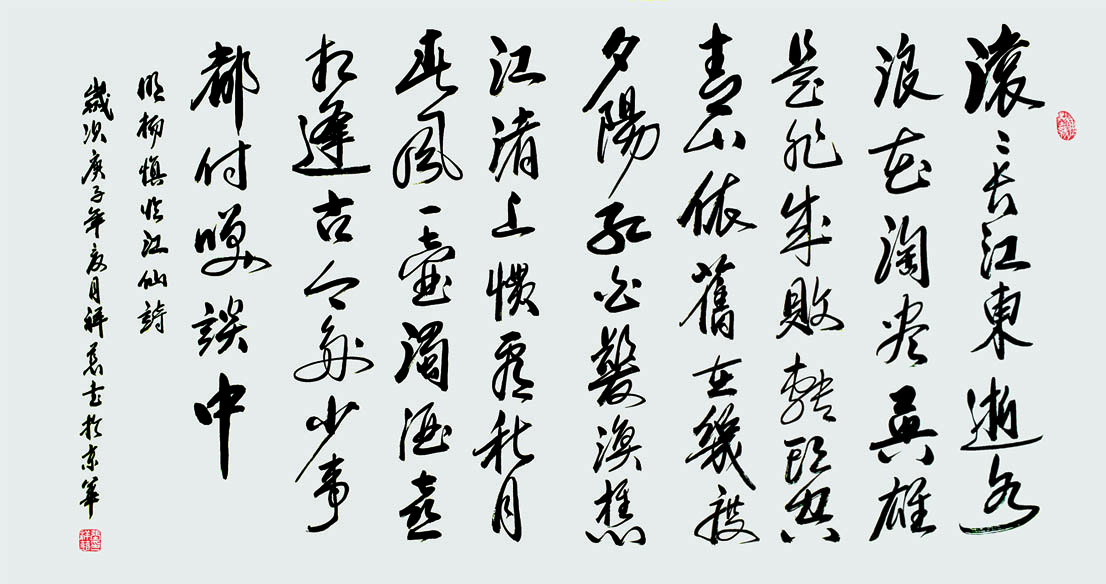 滚〻长江東逝水
浪花淘尽英雄
是非成败轉頭空
青山依舊在幾度
夕陽红白髮渔樵
江渚上惯看秋月
春风一壶濁酒喜
相逢古今多少事
都付咲談中
明杨慎临江仙詩
歲次庚子年夏月祥书於京華